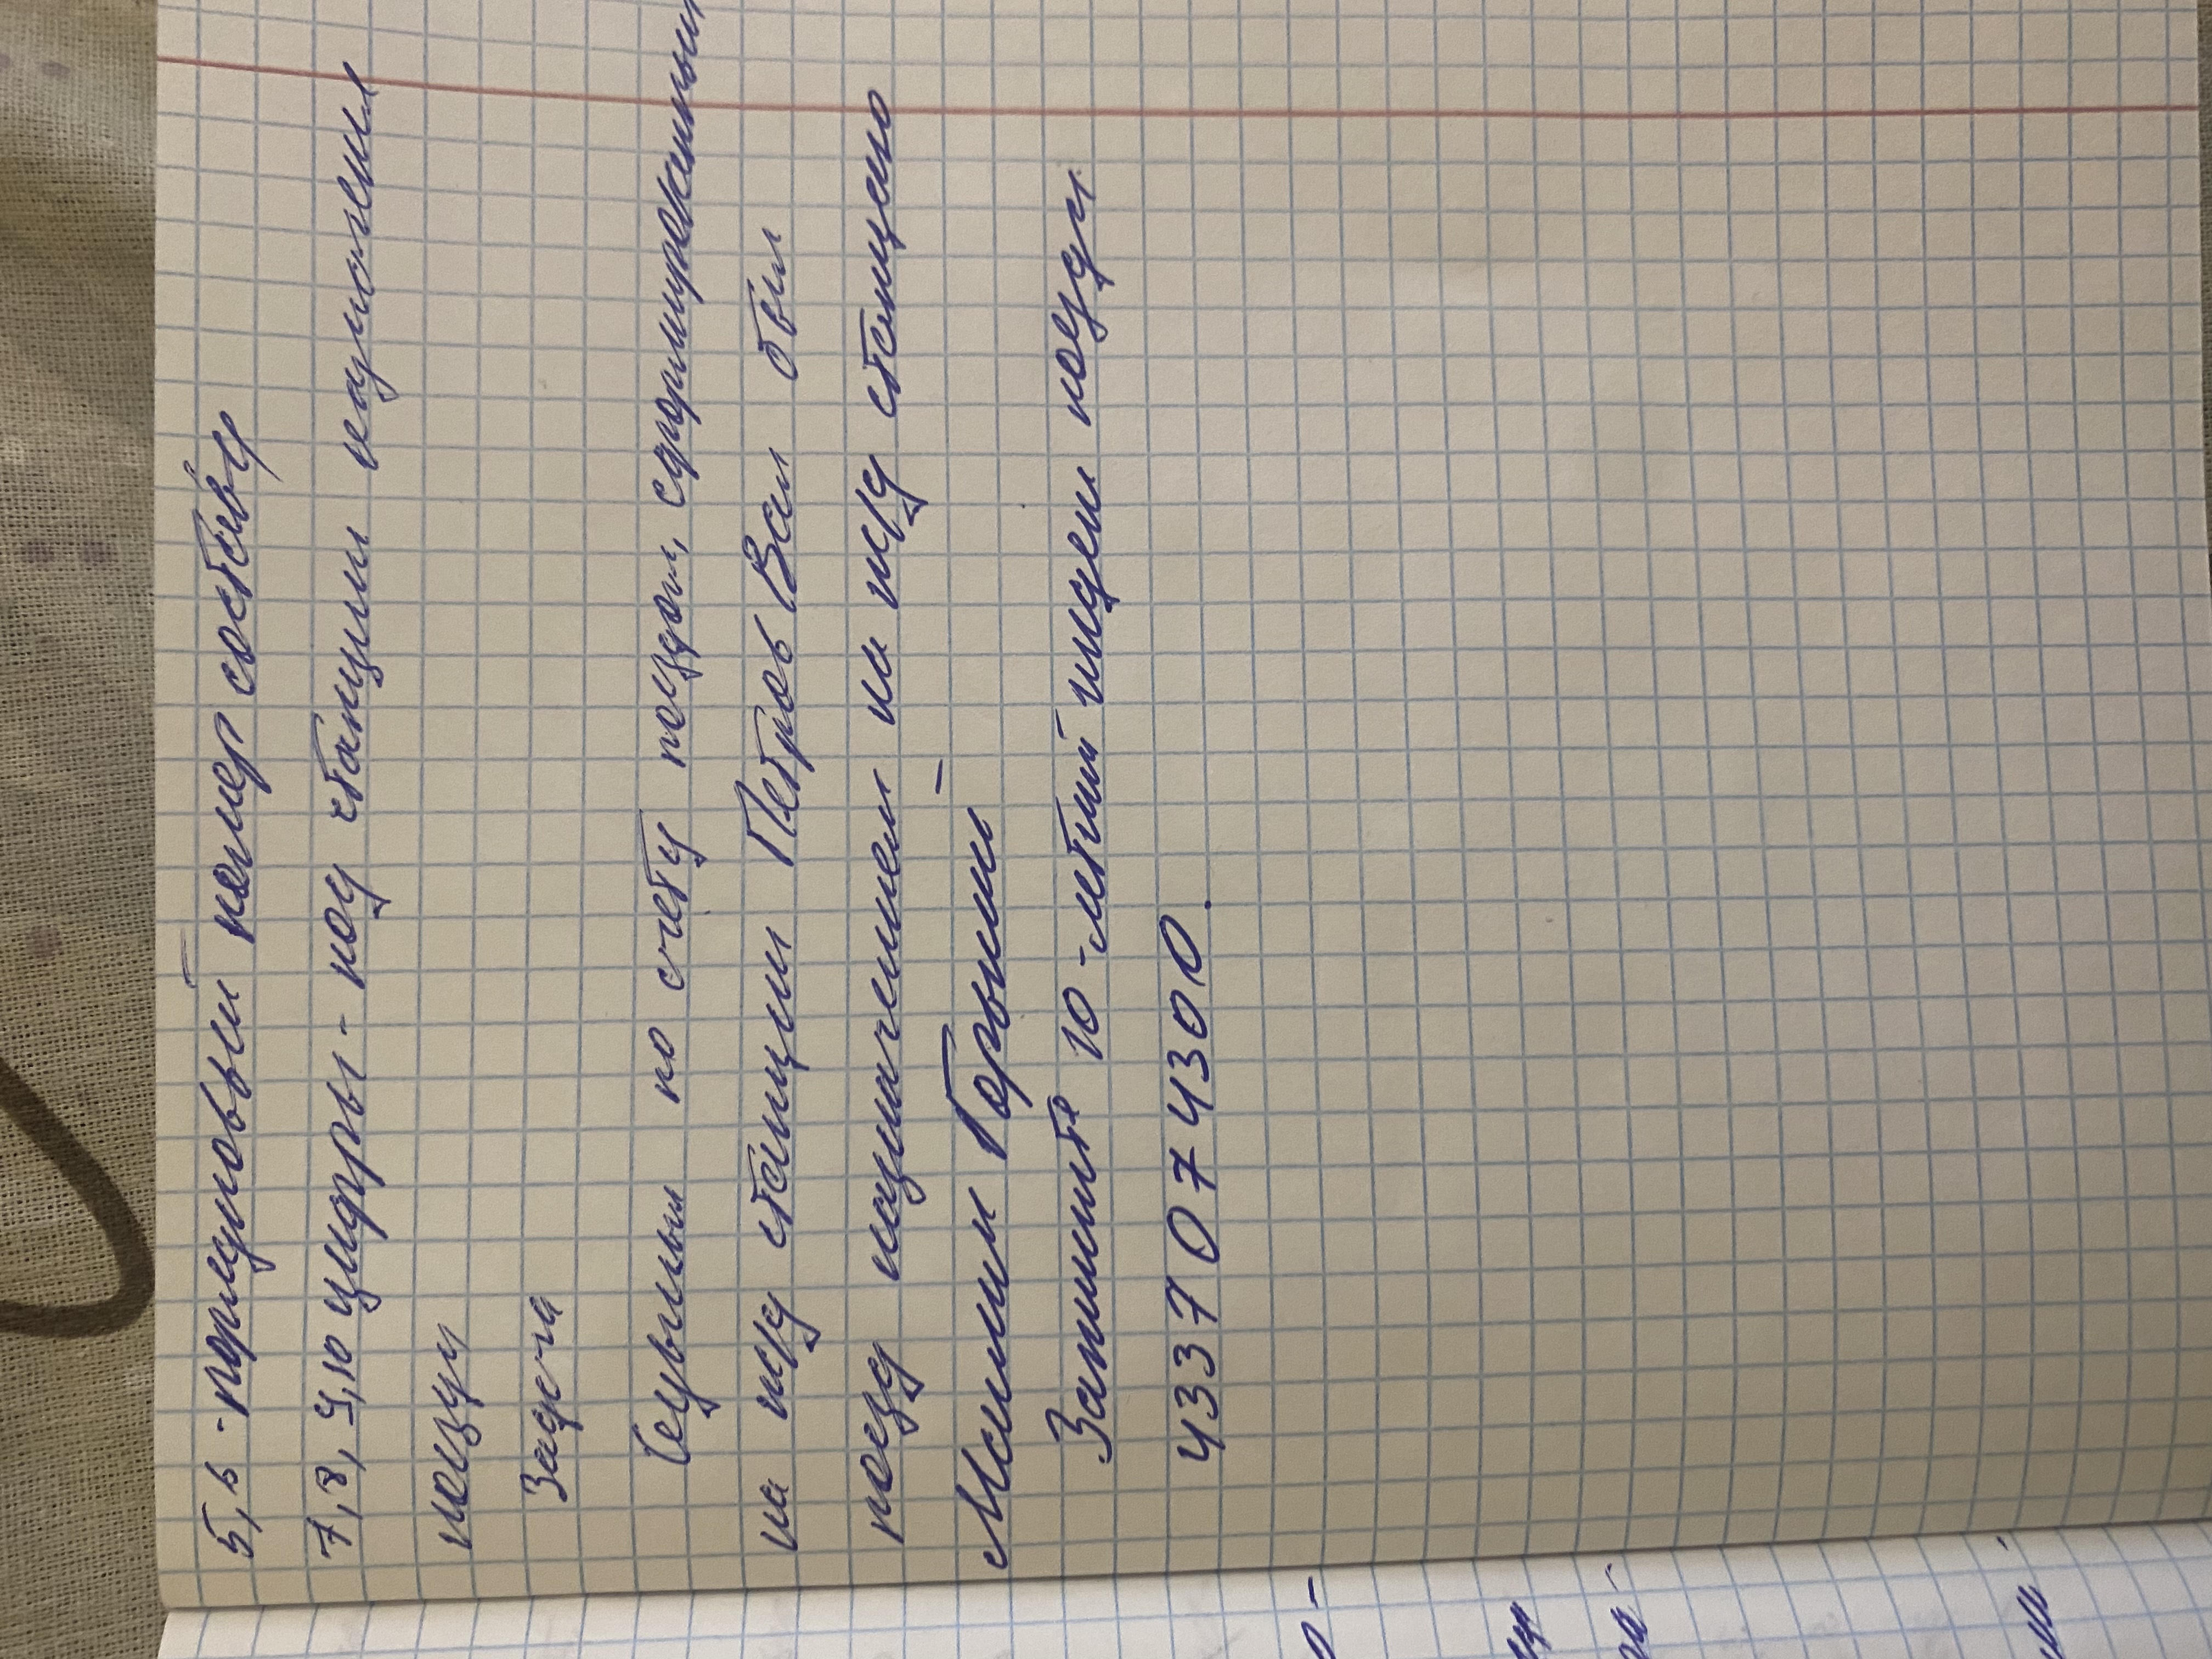 5,6 - порядковый номер составу
7,8,9,10 цифры - код станции назначения
поезда
Задача
Седьмым по счёту поездом, сформированным
на ж/д станции Петров Вал был
поезд назначением на ж/д станцию
Максим Горький -
Запишите 10-летий индекс поезда
4337074300.